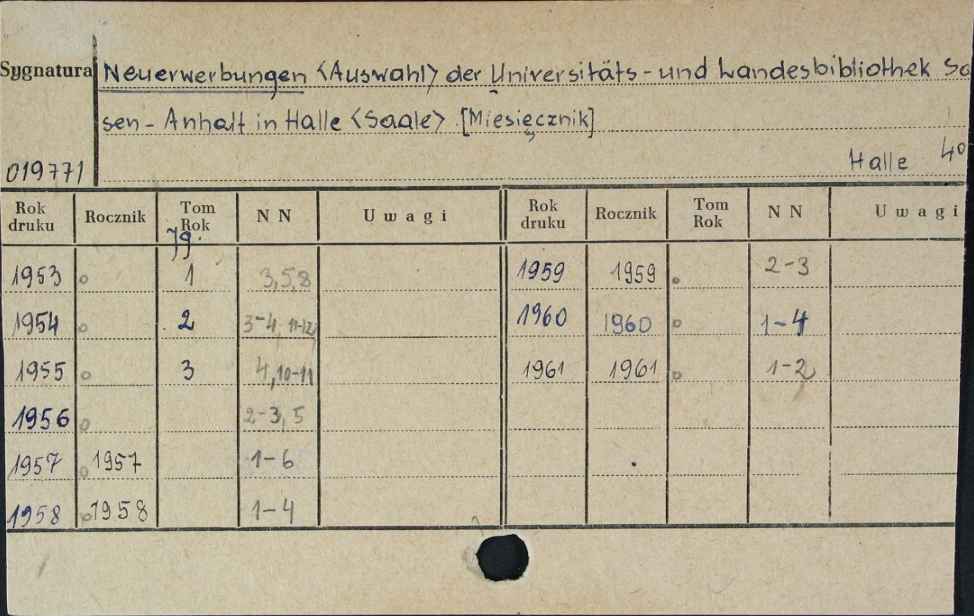 Sygnatura Neuerwerbungen <Auswahl> der Universitäts- und Landesbibliothek Sa
sen-Anhalt in Halle <Saale> [Miesięcznik]
019771 Halle 4°
Rok druku Rocznik Tom Rok NN Uwagi Rok druku Rocznik Tom Rok NN Uwagi
Jg.
1953 1 3,5,8 1959 1959 2-3
1954 2 3-4, 11-12 1960 1960 1-4
1955 3 4, 10-11 1961 1961 1-2
1956 2-3, 5
1957 1957 1-6
1958 1958 1-4